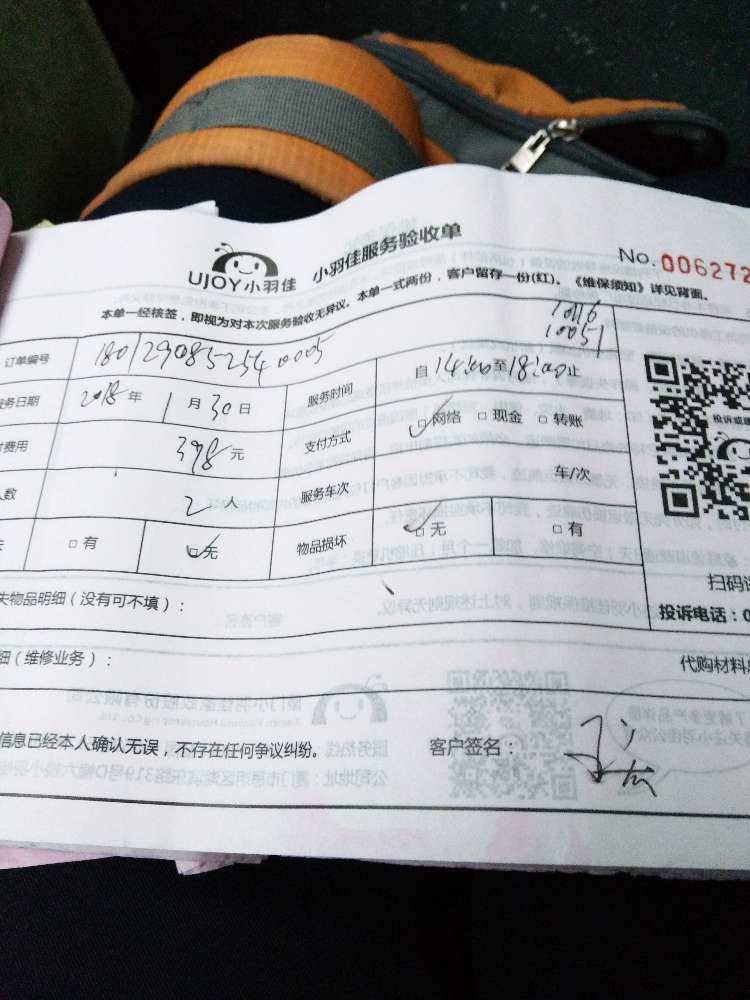 UJOY小羽佳 小羽佳服务验收单 No.006272
本单一经核签，即视为对本次服务验收无异议。本单一式两份，客户留存一份(红)。《维保须知》详见背面。
10116
10051
订单编号 1801290852540005
务日期 2018年1月30日 服务时间 自14:00至18:00止
费用 398元 支付方式 ☑网络 □现金 □转账
人数 2人 服务车次 车/次
失 □有 ☑无 物品损坏 ☑无 □有
投诉或
扫码
失物品明细（没有可不填）： 投诉电话：0
细（维修业务）： 代购材料
信息已经本人确认无误，不存在任何争议纠纷。 客户签名：